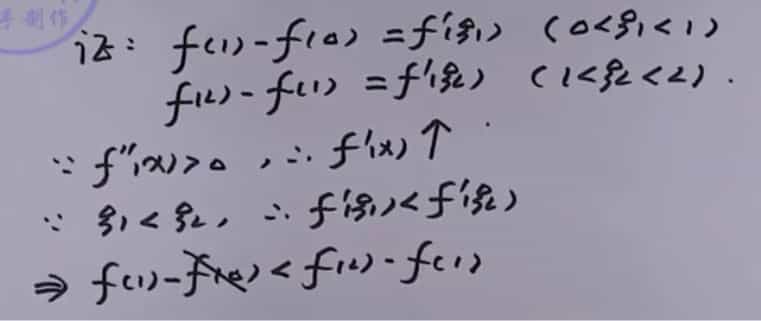 手制作
证: f(1)-f(0)=f'(ξ₁) (0<ξ₁<1)
f(2)-f(1)=f'(ξ₂) (1<ξ₂<2).
∵ f''(x)>0, ∴ f'(x)↑
∵ ξ₁<ξ₂, ∴ f'(ξ₁)<f'(ξ₂)
⇒ f(1)-f(0)<f(2)-f(1)